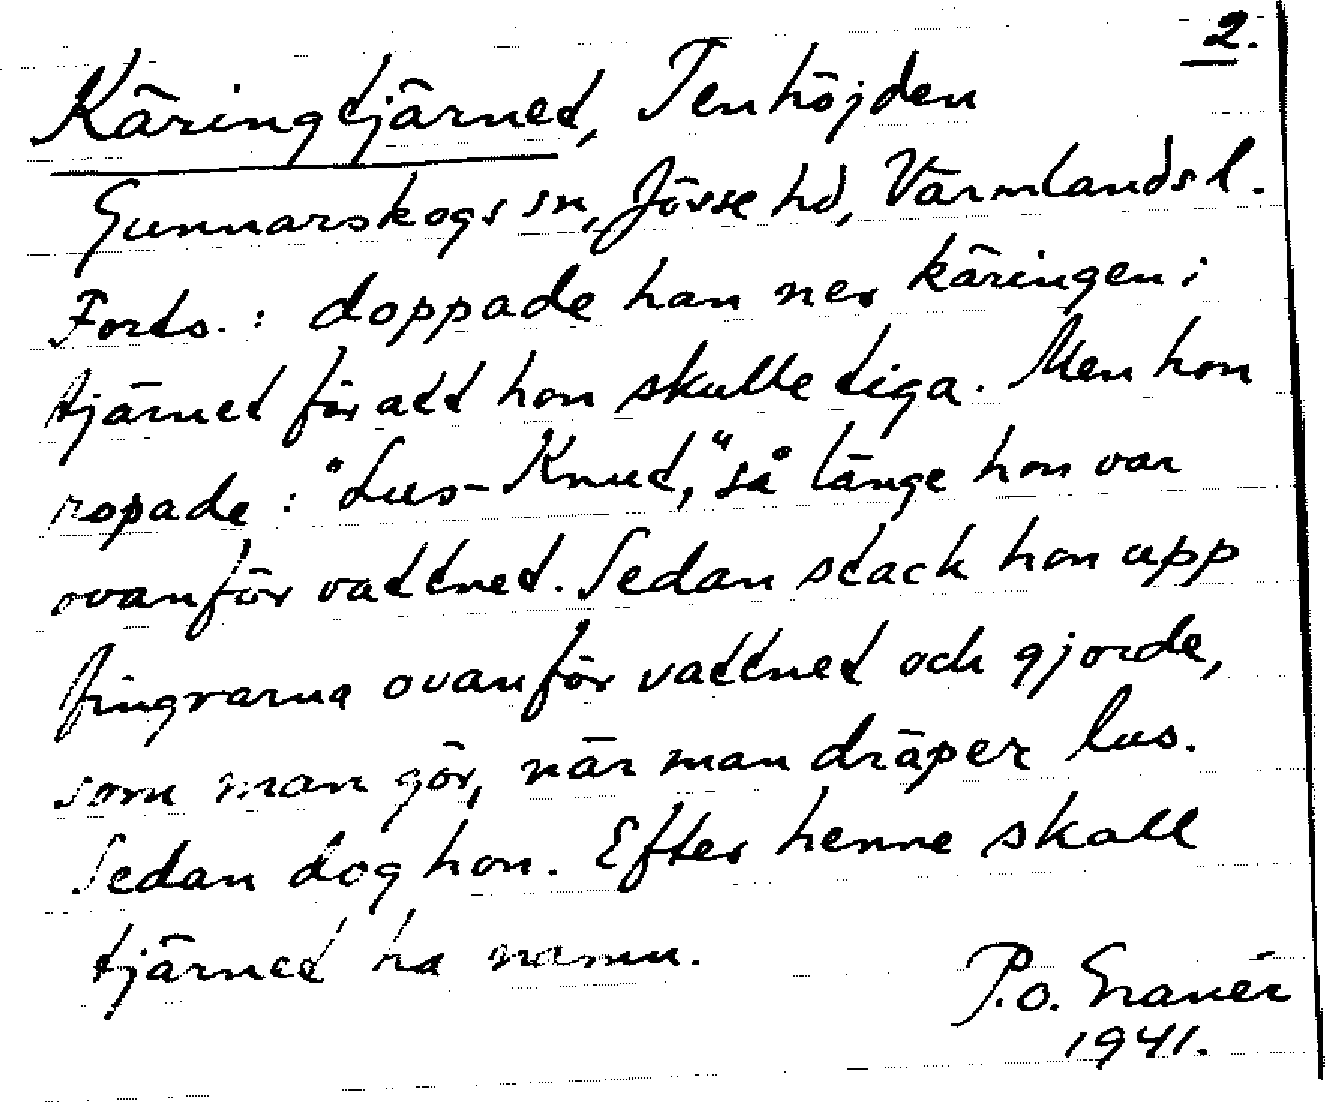 2.
Käringtjärnet, Tenhöjden
Gunnarskogs sn, Jösse hd, Värmlands l.
Forts. : doppade han ner käringen i
tjärnet för att hon skulle tiga. Men hon
ropade : "Lus-Knut," så länge hon var
ovanför vattnet. Sedan stack hon upp
fingrarna ovanför vattnet och gjorde,
som man gör, när man dräper lus.
Sedan dog hon. Efter henne skall
tjärnet ha namn.
P.O. Granér
1941.